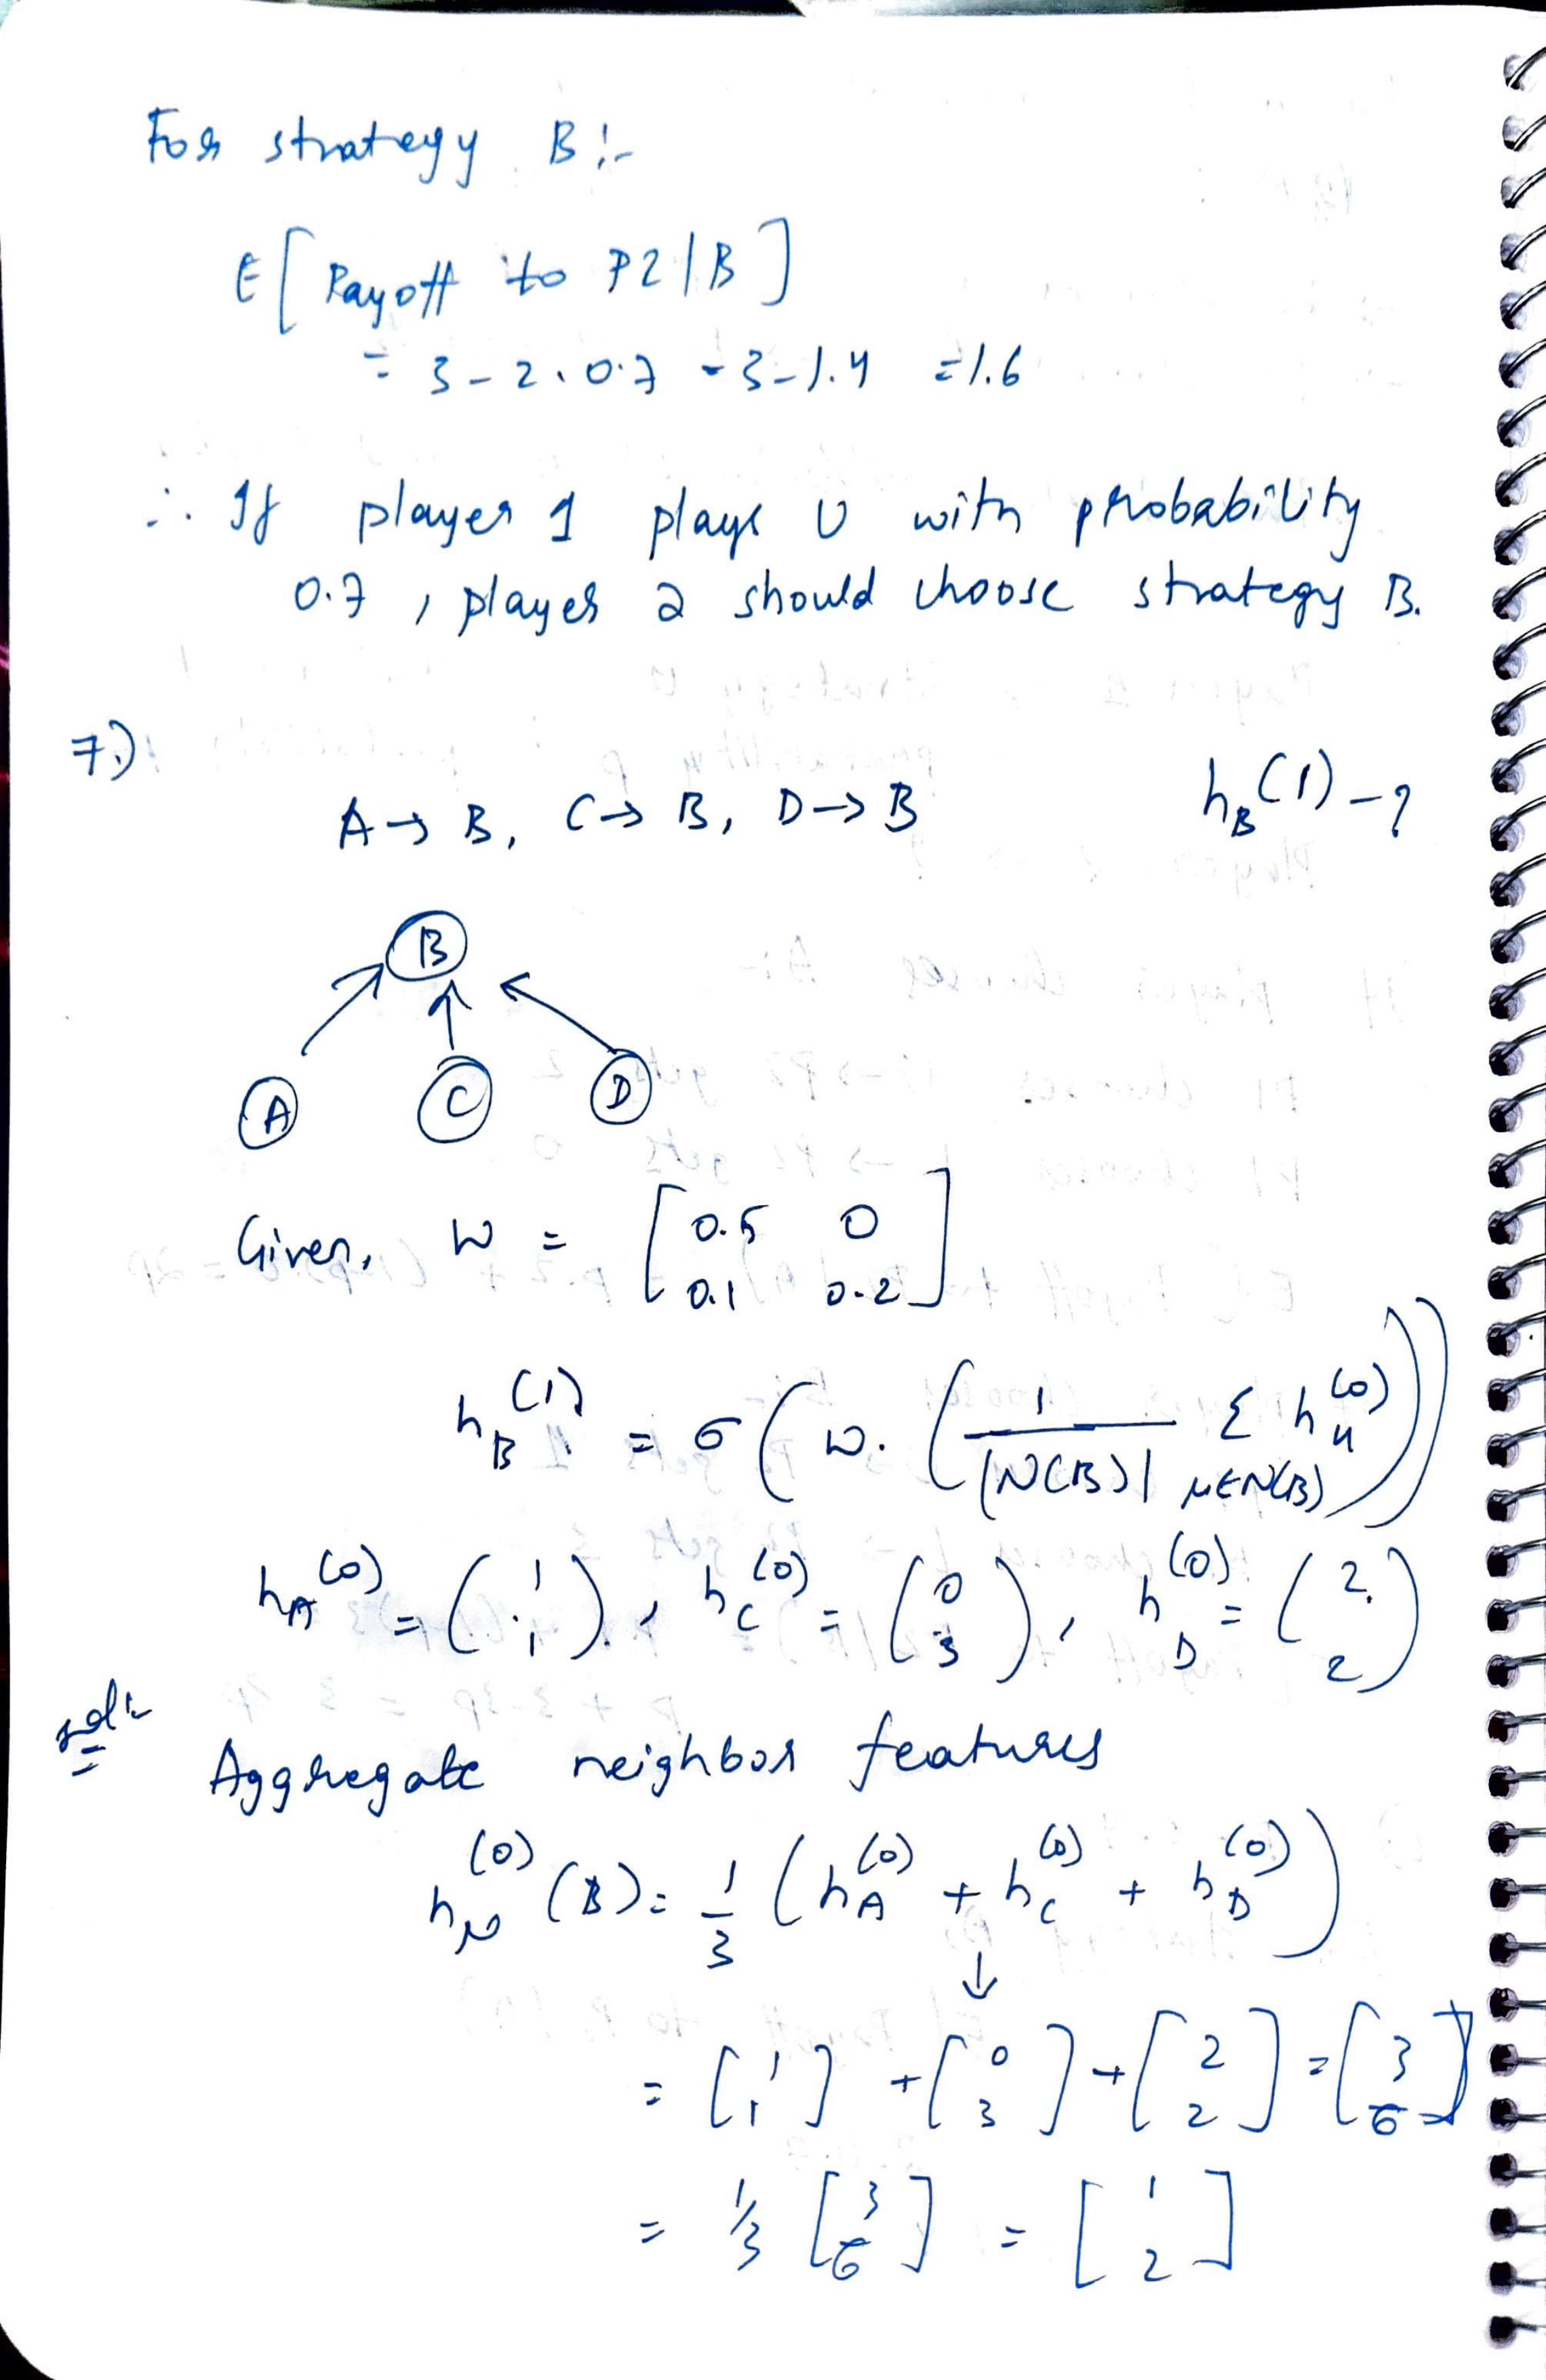 For strategy B :-
E[Payoff to P2|B]
= 3-2.0.7 = 3-1.4 = 1.6
∴ If player 1 plays U with probability
0.7, player 2 should choose strategy B.
7.)
A → B, C → B, D → B h_B(1) - ?
B
A C D
Given, W = [0.5 0
0.1 0.2]
h_B^(1) = σ(W. (1/|N(B)| Σ_{u∈N(B)} h_u^(0)))
h_A^(0) = (1 1), h_C^(0) = (0 3), h_D^(0) = (2 2)
sol:-
Aggregate neighbor features
h_N^(0)(B) = 1/3 (h_A^(0) + h_C^(0) + h_D^(0))
↓
= [1 1] + [0 3] + [2 2] = [3 6]
= 1/3 [3 6] = [1 2]